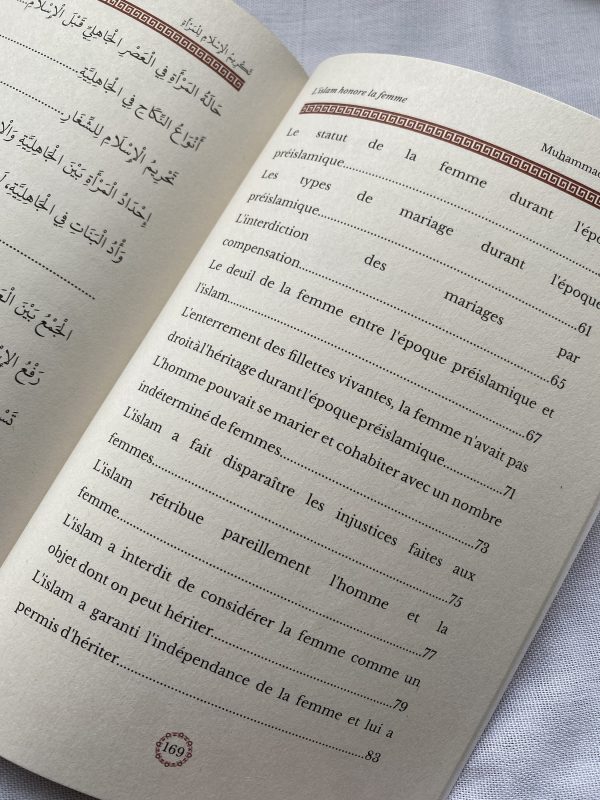 تَكْرِيمُ الْإِسْلَامِ لِلْمَرْأَةِ
حَالَةُ الْمَرْأَةِ فِي الْعَصْرِ الْجَاهِلِيِّ قَبْلَ الْإِسْلَامِ...
أَنْوَاعُ النِّكَاحِ فِي الْجَاهِلِيَّةِ...............
تَحْرِيمُ الْإِسْلَامِ لِلشِّغَارِ...............
إِحْدَادُ الْمَرْأَةِ بَيْنَ الْجَاهِلِيَّةِ
وَأْدُ الْبَنَاتِ فِي الْجَاهِلِيَّةِ،
الْجَمْعُ بَيْنَ
رَفْعُ
L'islam honore la femme
Muhammad
Le statut de la femme durant l'épo
préislamique...............
Les types de mariage durant l'époque
préislamique...............61
L'interdiction des mariages par
compensation...............65
Le deuil de la femme entre l'époque préislamique et
l'islam...............67
L'enterrement des fillettes vivantes, la femme n'avait pas
droit à l'héritage durant l'époque préislamique...............71
L'homme pouvait se marier et cohabiter avec un nombre
indéterminé de femmes...............73
L'islam a fait disparaître les injustices faites aux
femmes...............75
L'islam rétribue pareillement l'homme et la
femme...............77
L'islam a interdit de considérer la femme comme un
objet dont on peut hériter...............79
L'islam a garanti l'indépendance de la femme et lui a
permis d'hériter...............83
169